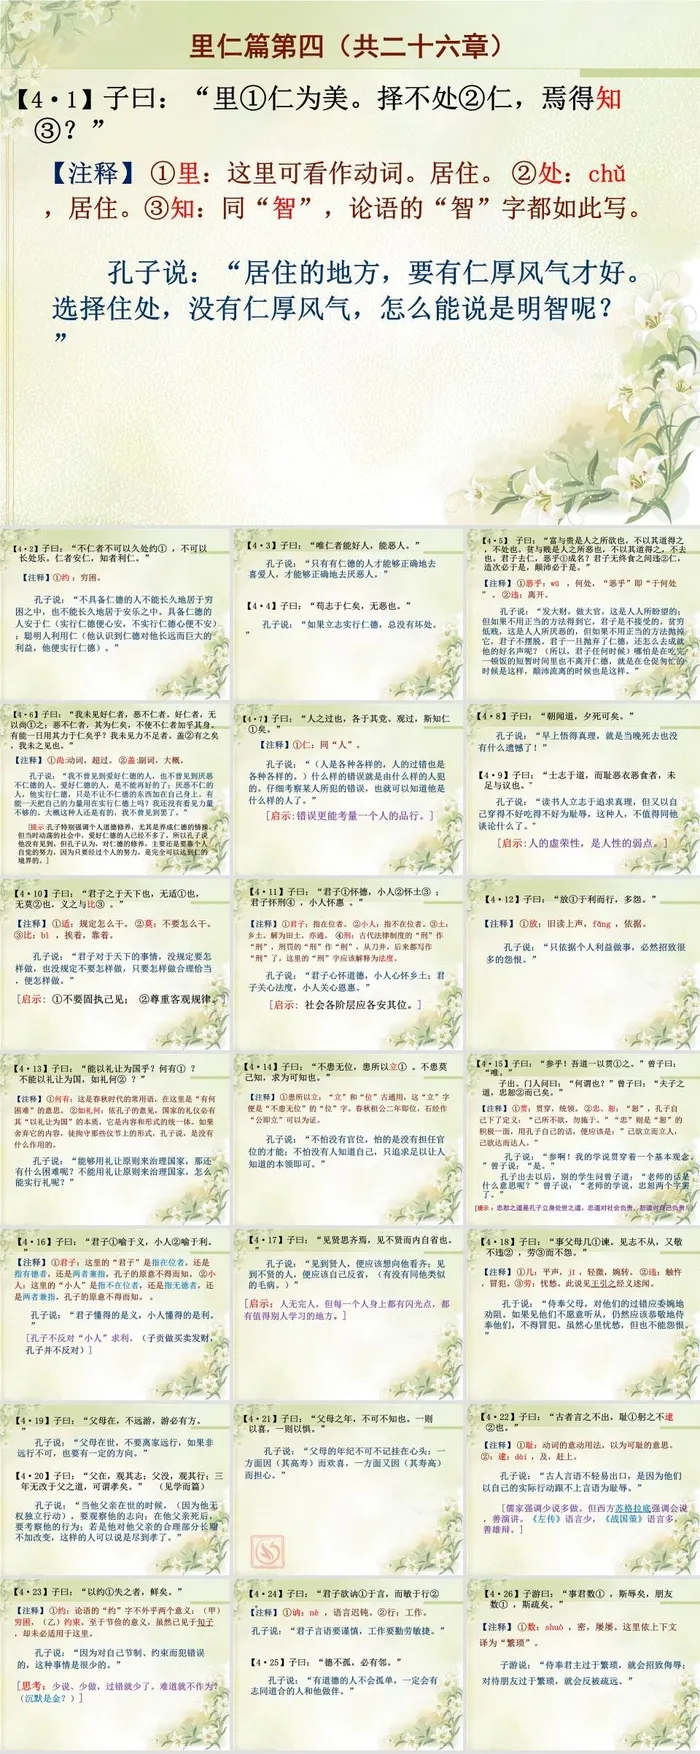 里仁篇第四（共二十六章）
【4·1】子曰：“里①仁为美。择不处②仁，焉得知
③？”
【注释】①里：这里可看作动词。居住。②处：chǔ
，居住。③知：同“智”，论语的“智”字都如此写。
孔子说：“居住的地方，要有仁厚风气才好。
选择住处，没有仁厚风气，怎么能说是明智呢？
”
【4·2】子曰：“不仁者不可以久处约①，不可以
长处乐。仁者安仁，知者利仁。”
【注释】①约：穷困。
孔子说：“不具备仁德的人不能长久地居于穷
困之中，也不能长久地居于安乐之中。具备仁德的
人安于仁（实行仁德便心安，不实行仁德心便不安）
；聪明人利用仁（他认识到仁德对他长远而巨大的
利益，他便实行仁德）。”
【4·3】子曰：“唯仁者能好人，能恶人。”
孔子说：“只有有仁德的人才能够正确地去
喜爱人，才能够正确地去厌恶人。”
【4·4】子曰：“苟志于仁矣，无恶也。”
孔子说：“如果立志实行仁德，总没有坏处。
”
【4·5】子曰：“富与贵是人之所欲也，不以其道得之
，不处也。贫与贱是人之所恶也，不以其道得之，不去
也。君子去仁，恶乎①成名？君子无终食之间违②仁，
造次必于是，颠沛必于是。”
【注释】①恶乎：wū，何处，“恶乎”即“于何处
”。②违：离开。
孔子说：“发大财，做大官，这是人人所盼望的；
但如果不用正当的方法得到它，君子是不接受的。贫穷
低贱，这是人人所厌恶的，但如果不用正当的方法抛掉
它，君子不摆脱。君子一旦抛弃了仁德，还怎么去成就
他的好名声呢？（所以，君子任何时候）哪怕是在吃完
一顿饭的短暂时间里也不离开仁德，就是在仓促匆忙的
时候是这样，颠沛流离的时候也是这样。”
【4·6】子曰：“我未见好仁者，恶不仁者。好仁者，无
以尚①之；恶不仁者，其为仁矣，不使不仁者加乎其身。
有能一日用其力于仁矣乎？我未见力不足者。盖②有之矣
，我未之见也。”
【注释】①尚:动词，超过。②盖:副词，大概。
孔子说：“我不曾见到爱好仁德的人，也不曾见到厌恶
不仁德的人。爱好仁德的人，是不能再好的了；厌恶不仁的
人，他实行仁德，只是不让不仁德的东西加在自己身上。有
能一天把自己的力量用在实行仁德上吗？我还没有看见力量
不够的。大概这种人还是有的，我不曾见到罢了。”
[提示:孔子特别强调个人道德修养，尤其是养成仁德的情操。
但当时动荡的社会中，爱好仁德的人已经不多了，所以孔子说
他没有见到。但孔子认为，对仁德的修养，主要还是要靠个人
自觉的努力，因为只要经过个人的努力，是完全可以达到仁的
境界的。]
【4·7】子曰：“人之过也，各于其党。观过，斯知仁
①矣。”
【注释】①仁：同“人”。
孔子说：“（人是各种各样的，人的过错也是
各种各样的。）什么样的错误就是由什么样的人犯
的。仔细考察某人所犯的错误，也就可以知道他是
什么样的人了。”
[启示:错误更能考量一个人的品行。]
【4·8】子曰：“朝闻道，夕死可矣。”
孔子说：“早上悟得真理，就是当晚死去也没
有什么遗憾了！”
【4·9】子曰：“士志于道，而耻恶衣恶食者，未
足与议也。”
孔子说：“读书人立志于追求真理，但又以自
己穿得不好吃得不好为耻辱，这种人，不值得同他
谈论什么了。”
[启示:人的虚荣性，是人性的弱点。]
【4·10】子曰：“君子之于天下也，无适①也，
无莫②也，义之与比③。”
【注释】①适：规定怎么干。②莫：不要怎么干。
③比：bì，挨着，靠着。
孔子说：“君子对于天下的事情，没规定要怎
样做，也没规定不要怎样做，只要怎样做合理恰当
，便怎样做。”
[启示: ①不要固执己见； ②尊重客观规律。]
【4·11】子曰：“君子①怀德，小人②怀土③；
君子怀刑④，小人怀惠。”
【注释】①君子：指在位者。②小人：指不在位者。③土：
乡土。解为田土，亦通。④刑：古代法律制度的“刑”作
“刑”，刑罚的“刑”作“刑”，从刀井，后来都写作
“刑”了。这里的“刑”字应该解释为法度。
孔子说：“君子心怀道德，小人心怀乡土；君
子关心法度，小人关心恩惠。”
[启示: 社会各阶层应各安其位。]
【4·12】子曰：“放①于利而行，多怨。”
【注释】①放：旧读上声，fǎng，依据。
孔子说：“只依据个人利益做事，必然招致很
多的怨恨。”
【4·13】子曰：“能以礼让为国乎？何有①？
不能以礼让为国，如礼何②？”
【注释】①何有：这是春秋时代的常用语，在这里是“有何
困难”的意思。②如礼何：依孔子的意见，国家的礼仪必有
其“以礼让为国”的本质，它是内容和形式的统一体。如果
舍弃它的内容，徒拘守那些仪节上的形式，孔子说，是没有
什么作用的。
孔子说：“能够用礼让原则来治理国家，那还
有什么困难呢？不能用礼让原则来治理国家，怎么
能实行礼呢？”
【4·14】子曰：“不患无位，患所以立①。不患莫
己知，求为可知也。”
【注释】①患所以立：“立”和“位”古通用，这“立”字
便是“不患无位”的“位”字。春秋桓公二年即位，石经作
“公即立”可以为证。
孔子说：“不怕没有官位，怕的是没有担任官
位的才能；不怕没有人知道自己，只追求足以让人
知道的本领即可。”
【4·15】子曰：“参乎！吾道一以贯①之。”曾子曰：
“唯。”
子出。门人问曰：“何谓也？”曾子曰：“夫子之
道，忠恕②而已矣。”
【注释】①贯：贯穿，统领。②忠、恕：“恕”，孔子自
己下了定义：“己所不欲，勿施于人。”“忠”则是“恕”的
积极一面，用孔子自己的话，便应该是：“己欲立而立人，
己欲达而达人。”
孔子说：“参啊！我的学说贯穿着一个基本观念。
”曾子说：“是。”
孔子出去以后，别的学生问曾子道：“老师的话是
什么意思呢？”曾子说：“老师的学说，忠恕两个字罢
了。”
[提示：忠恕之道是孔子立身处世之道，忠道对社会负责，恕道对自己负责。]
【4·16】子曰：“君子①喻于义，小人②喻于利。
”
【注释】①君子：这里的“君子”是指在位者，还是
指有德者，还是两者兼指，孔子的原意不得而知。②小
人：这里的“小人”是指不在位者，还是指无德者，还
是两者兼指，孔子的原意不得而知。。
孔子说：“君子懂得的是义，小人懂得的是利。
”
[孔子不反对“小人”求利。（子贡做买卖发财，
孔子并不反对）]
【4·17】子曰：“见贤思齐焉，见不贤而内自省也。
”
孔子说：“见到贤人，便应该想向他看齐；见
到不贤的人，便应该自己反省，（有没有同他类似
的毛病。）”
[启示：人无完人，但每一个人身上都有闪光点，都
有值得别人学习的地方。]
【4·18】子曰：“事父母几①谏。见志不从，又敬
不违②，劳③而不怨。”
【注释】①几：平声，jī，轻微，婉转。②违：触忤
，冒犯。③劳：忧愁。此说见王引之经义述闻。
孔子说：“侍奉父母，对他们的过错应委婉地
劝阻。如果见他们不愿意听从，仍然应该恭敬地侍
奉他们，不得冒犯。虽然心里忧愁，但也不能怨恨。
”
【4·19】子曰：“父母在，不远游，游必有方。
”
孔子说：“父母在世，不要离家远行，如果非
远行不可，也要有一定的方向。”
【4·20】子曰：“父在，观其志；父没，观其行；三
年无改于父之道，可谓孝矣。” （见学而篇）
孔子说：“当他父亲在世的时候，（因为他无
权独立行动），要观察他的志向；在他父亲死后，
要考察他的行为；若是他对他父亲的合理部分长期
不加改变，这样的人可以说是尽到孝了。”
【4·21】子曰：“父母之年，不可不知也。一则
以喜，一则以惧。”
孔子说：“父母的年纪不可不记挂在心头：一
方面因（其高寿）而欢喜，一方面又因（其寿高）
而担心。”
【4·22】子曰：“古者言之不出，耻①躬之不逮
②也。”
【注释】①耻：动词的意动用法，以为可耻的意思。
②：逮：dài，及，赶上。
孔子说：“古人言语不轻易出口，是因为他们
以自己的实际行动跟不上言语为耻辱。”
[儒家强调少说多做。但西方苏格拉底强调会说
，善演讲。《左传》语言少，《战国策》语言多，
善雄辩。]
【4·23】子曰：“以约①失之者，鲜矣。”
【注释】①约：论语的“约”字不外乎两个意义：（甲）
穷困，（乙）约束。至于节俭的意义，虽然已见于荀子
，却未必适用于这里。
孔子说：“因为对自己节制、约束而犯错误
的，这种事情是很少的。”
[思考：少说、少做，过错就少了。难道就不作为？
（沉默是金？）]
【4·24】子曰：“君子欲讷①于言，而敏于行②
。”
【注释】①讷：nè，语言迟钝。②行：工作。
孔子说：“君子言语要谨慎，工作要勤劳敏捷。”
【4·25】子曰：“德不孤，必有邻。”
孔子说：“有道德的人不会孤单，一定会有
志同道合的人和他做伴。”
【4·26】子游曰：“事君数①，斯辱矣，朋友
数①，斯疏矣。”
【注释】①数：shuò，密，屡屡。这里依上下文
译为“繁琐”。
子游说：“侍奉君主过于繁琐，就会招致侮辱；
对待朋友过于繁琐，就会反被疏远。”